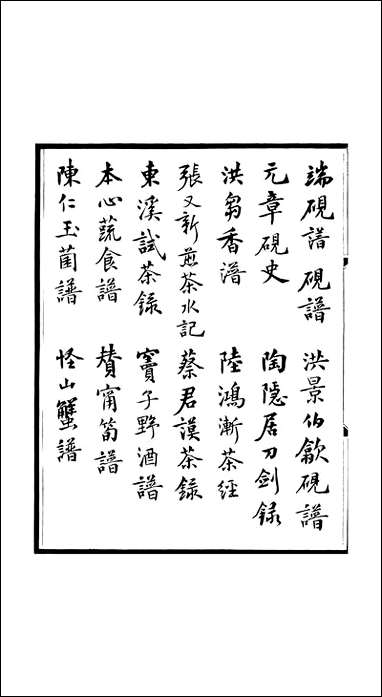 端硯譜 硯譜 洪景伯歙硯譜
元章硯史 陶隱居刀劍錄
洪芻香譜 陸鴻漸茶經
張又新煎茶水記 蔡君謨茶錄
東溪試茶錄 竇子野酒譜
本心蔬食譜 贊甯筍譜
陳仁玉菌譜 怪山蟹譜